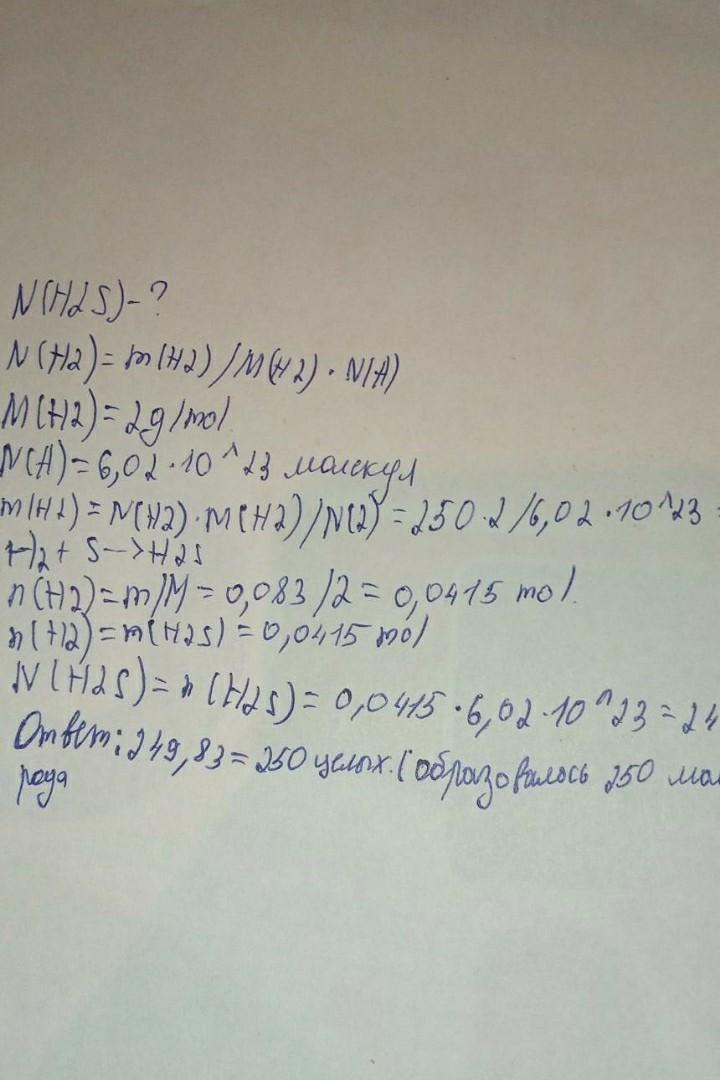 N(H2S)-?
N(H2)=m(H2)/M(H2)·N(A)
M(H2)=2g/mol
N(A)=6,02·10^23 молекул
m(H2)=N(H2)·M(H2)/N(2)=250·2/6,02·10^23
H2+S->H2S
n(H2)=m/M=0,083/2=0,0415 mol.
n(H2)=n(H2S)=0,0415 mol
N(H2S)=n(H2S)=0,0415·6,02·10^23=24
Ответ: 249,83=250 целых.(образовалось 250 мол
рода